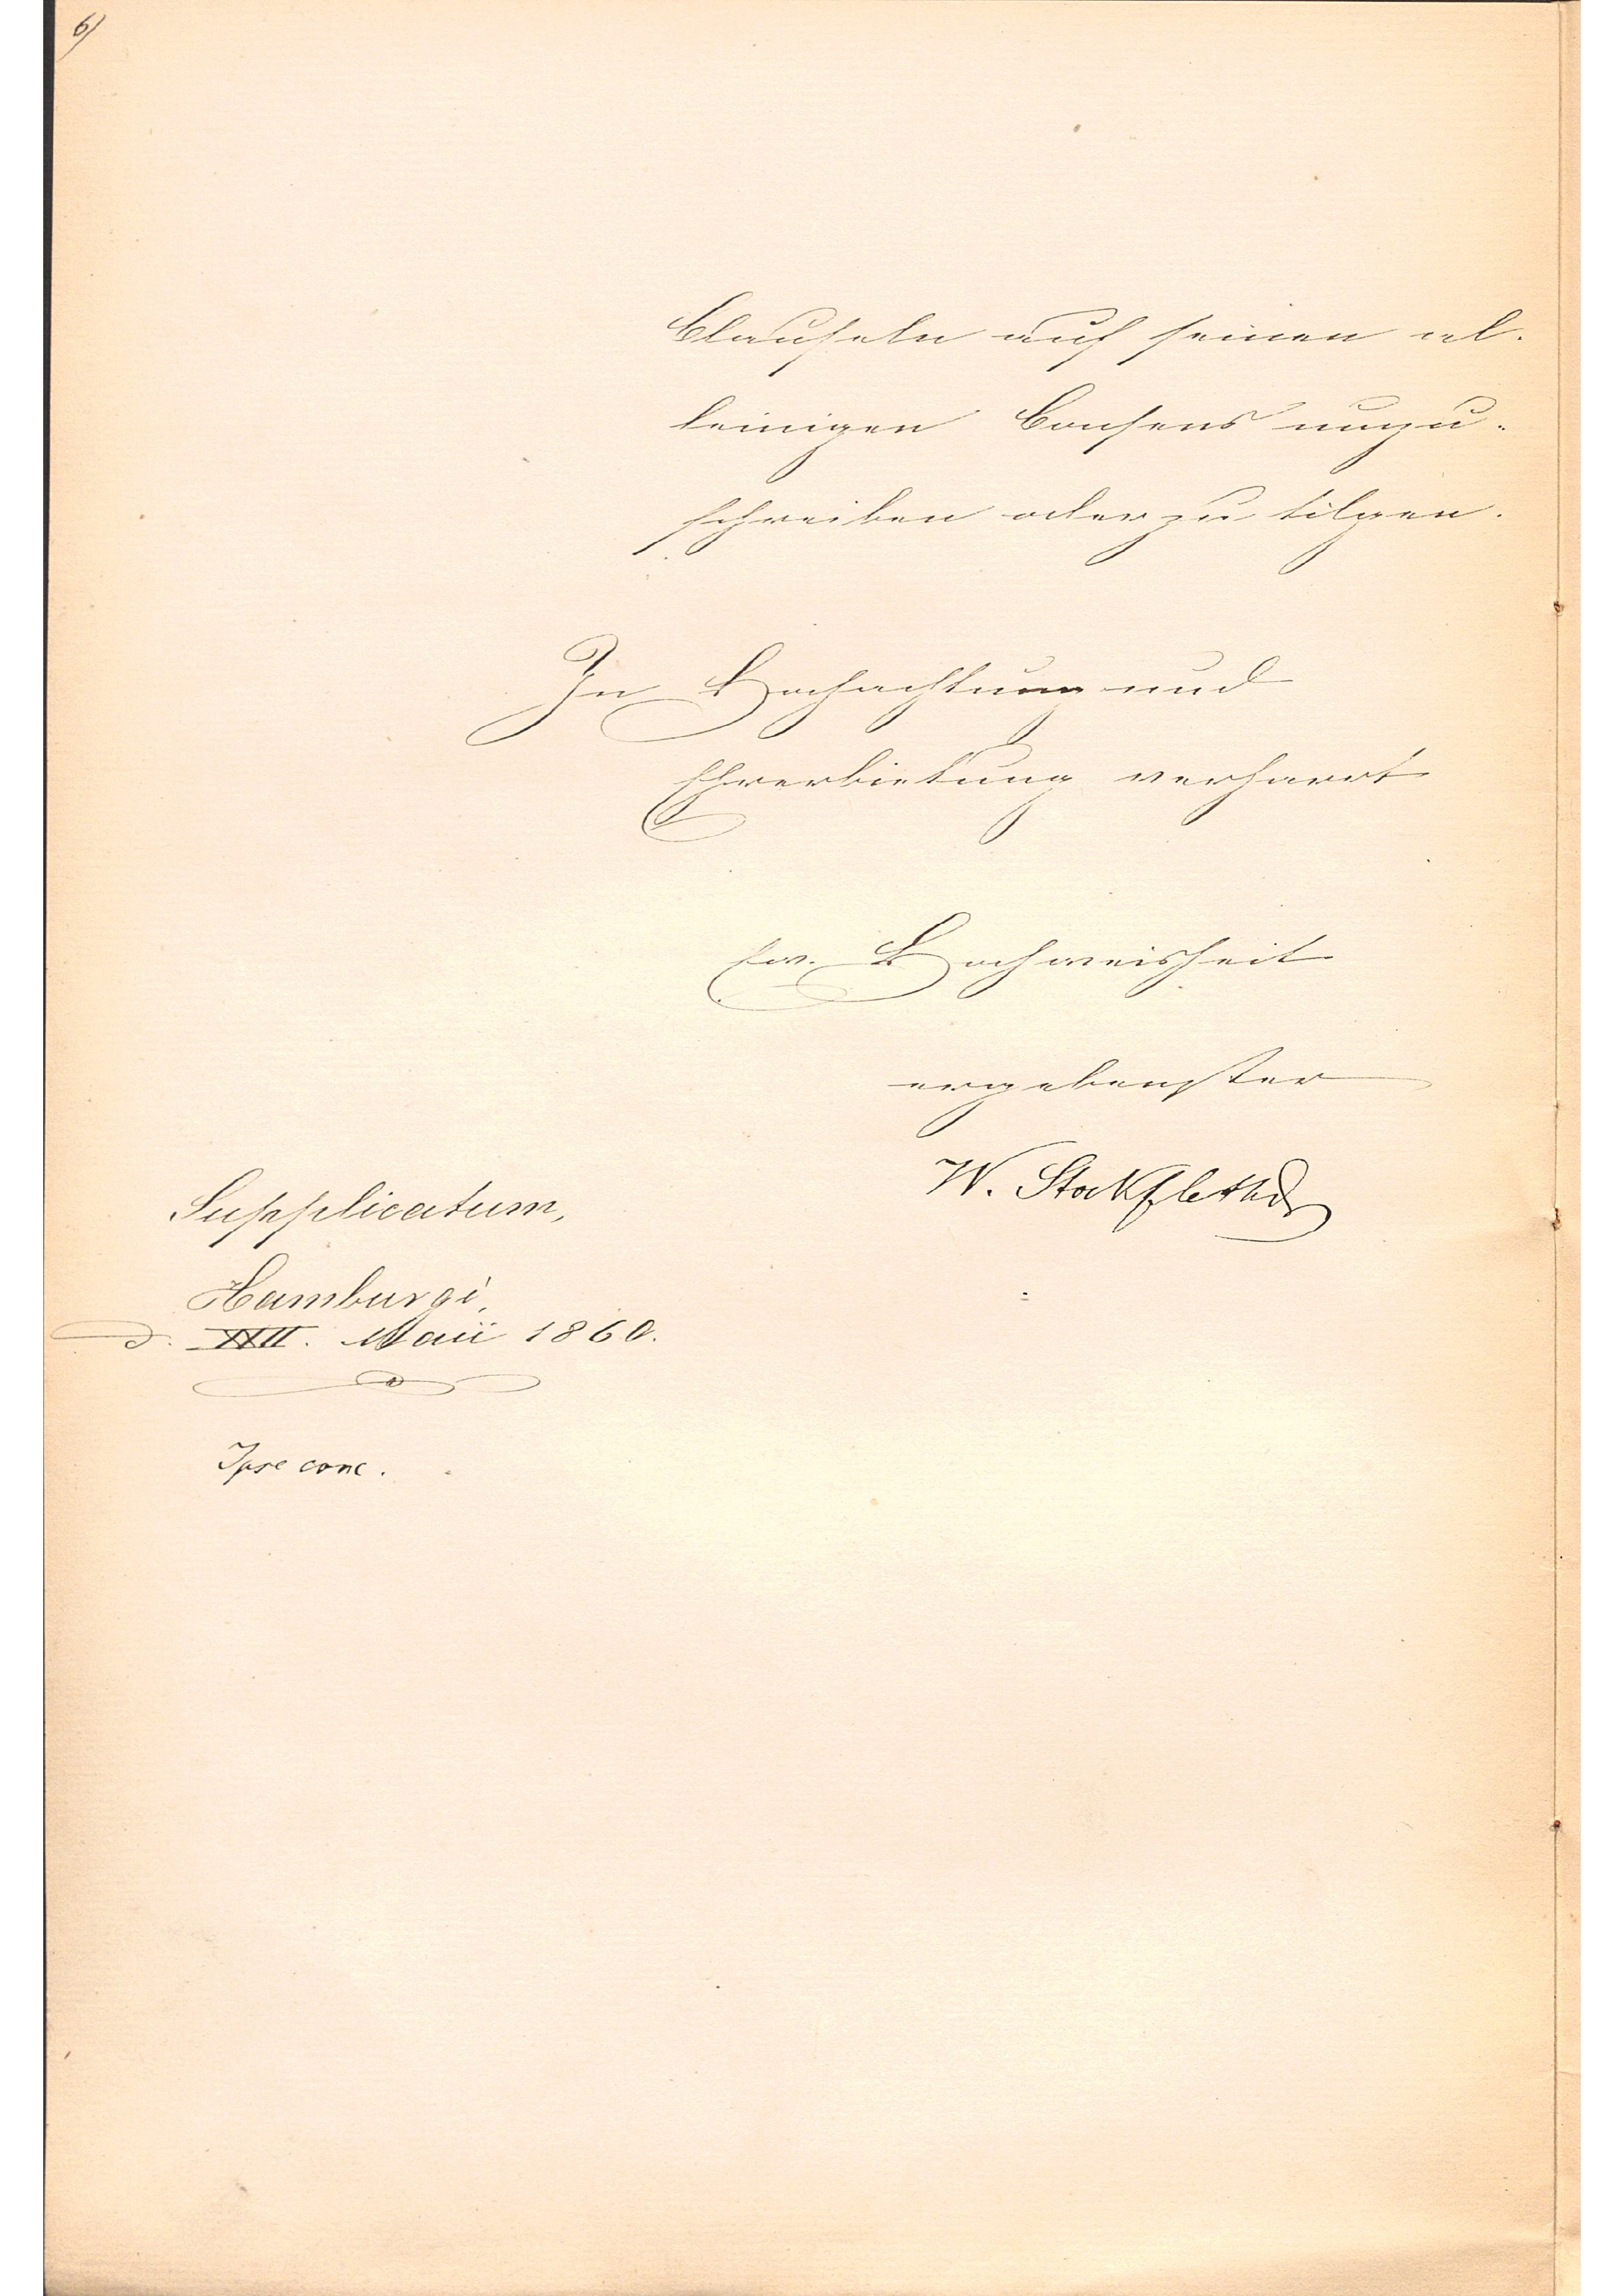 6)
Clauseln auf seinen al-
leinigen Consens umzu-
schreiben oder zu tilgen.
In Hochachtung und
Ehrerbietung verharrt
Ew. Hochweisheit
ergebenster
W. Stockfleth
Supplicatum,
Hamburgi,
d. XXII. Maii 1860.
Ipse conc.